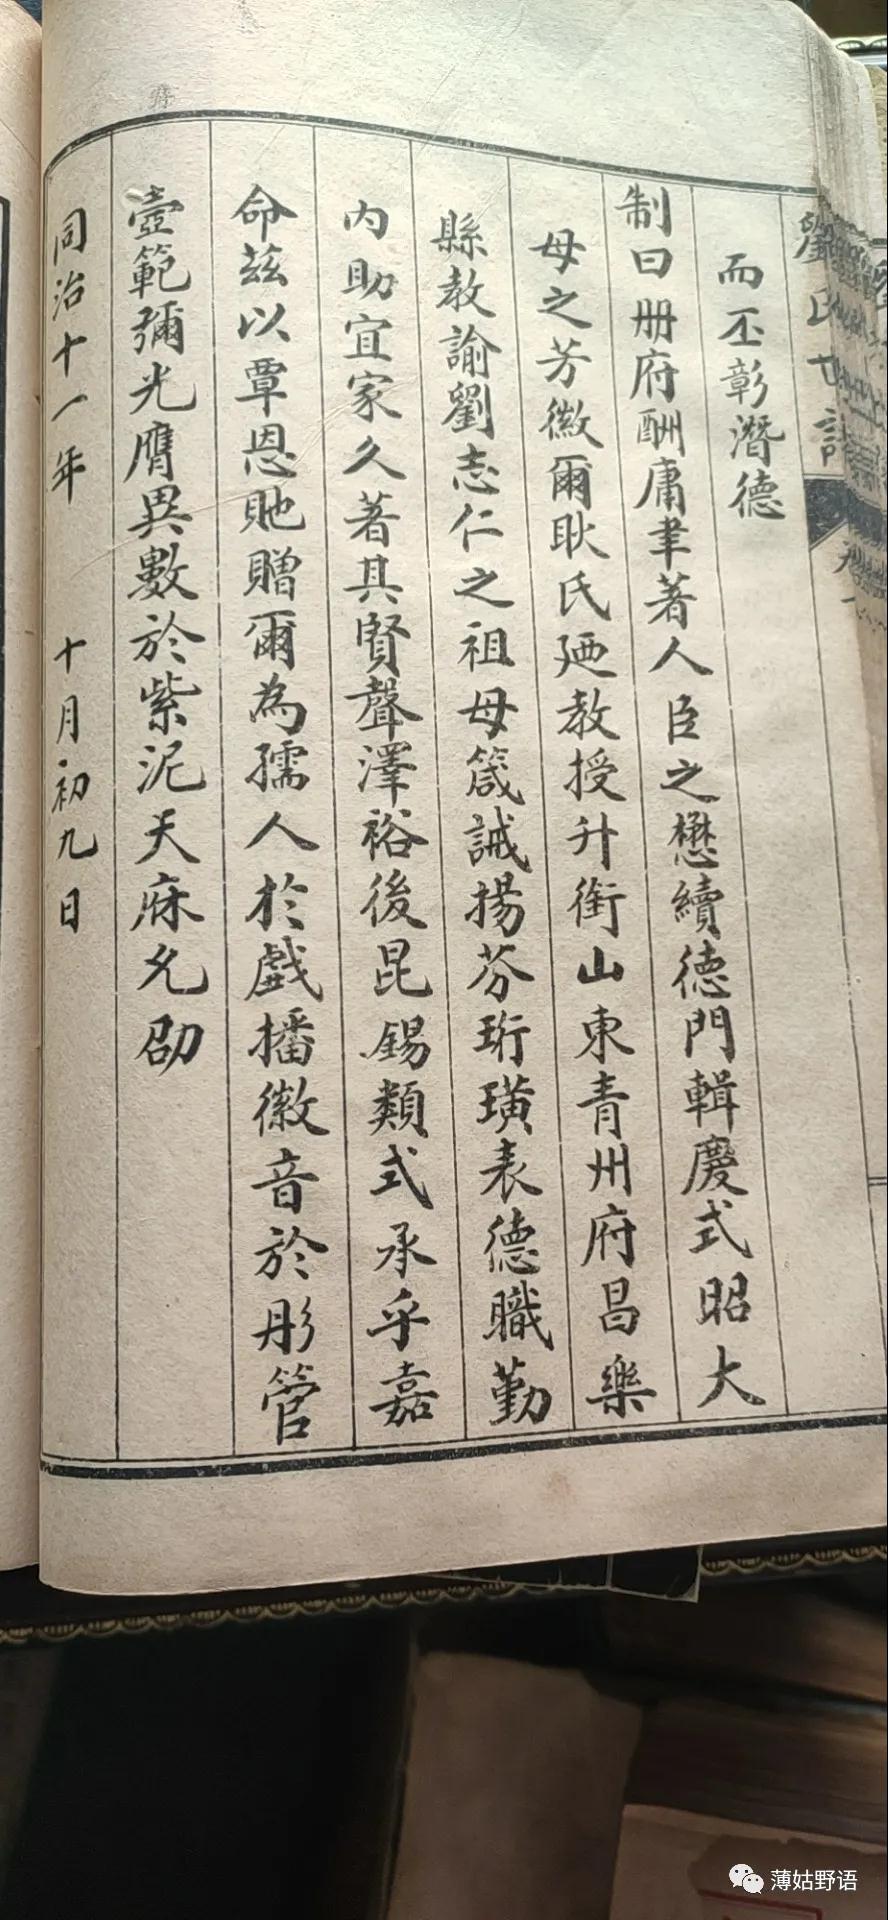 劉氏世譜
而丕彰潛德
制曰册府酬庸聿著人臣之懋績德門輯慶式昭大
母之芳徽爾耿氏廼教授升銜山東青州府昌樂
縣教諭劉志仁之祖母箴誡揚芬珩璜表德職勤
内助宜家久著其賢聲澤裕後昆錫類式承乎嘉
命茲以覃恩貤贈爾為孺人於戲播徽音於彤管
壺範彌光膺異數於紫泥天庥允劭
同治十一年 十月初九日
薄姑野语